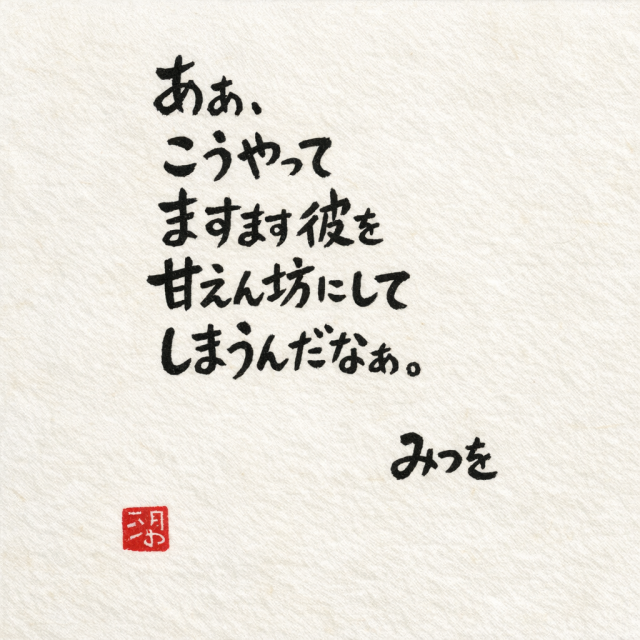 あぁ、
こうやって
ますます彼を
甘えん坊にして
しまうんだなぁ。
みつを